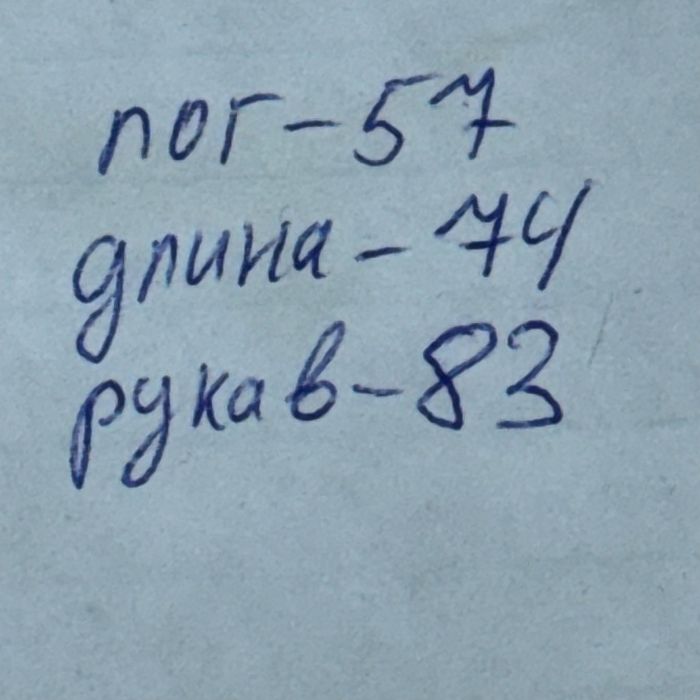 пог-57
длина-74
рукав-83